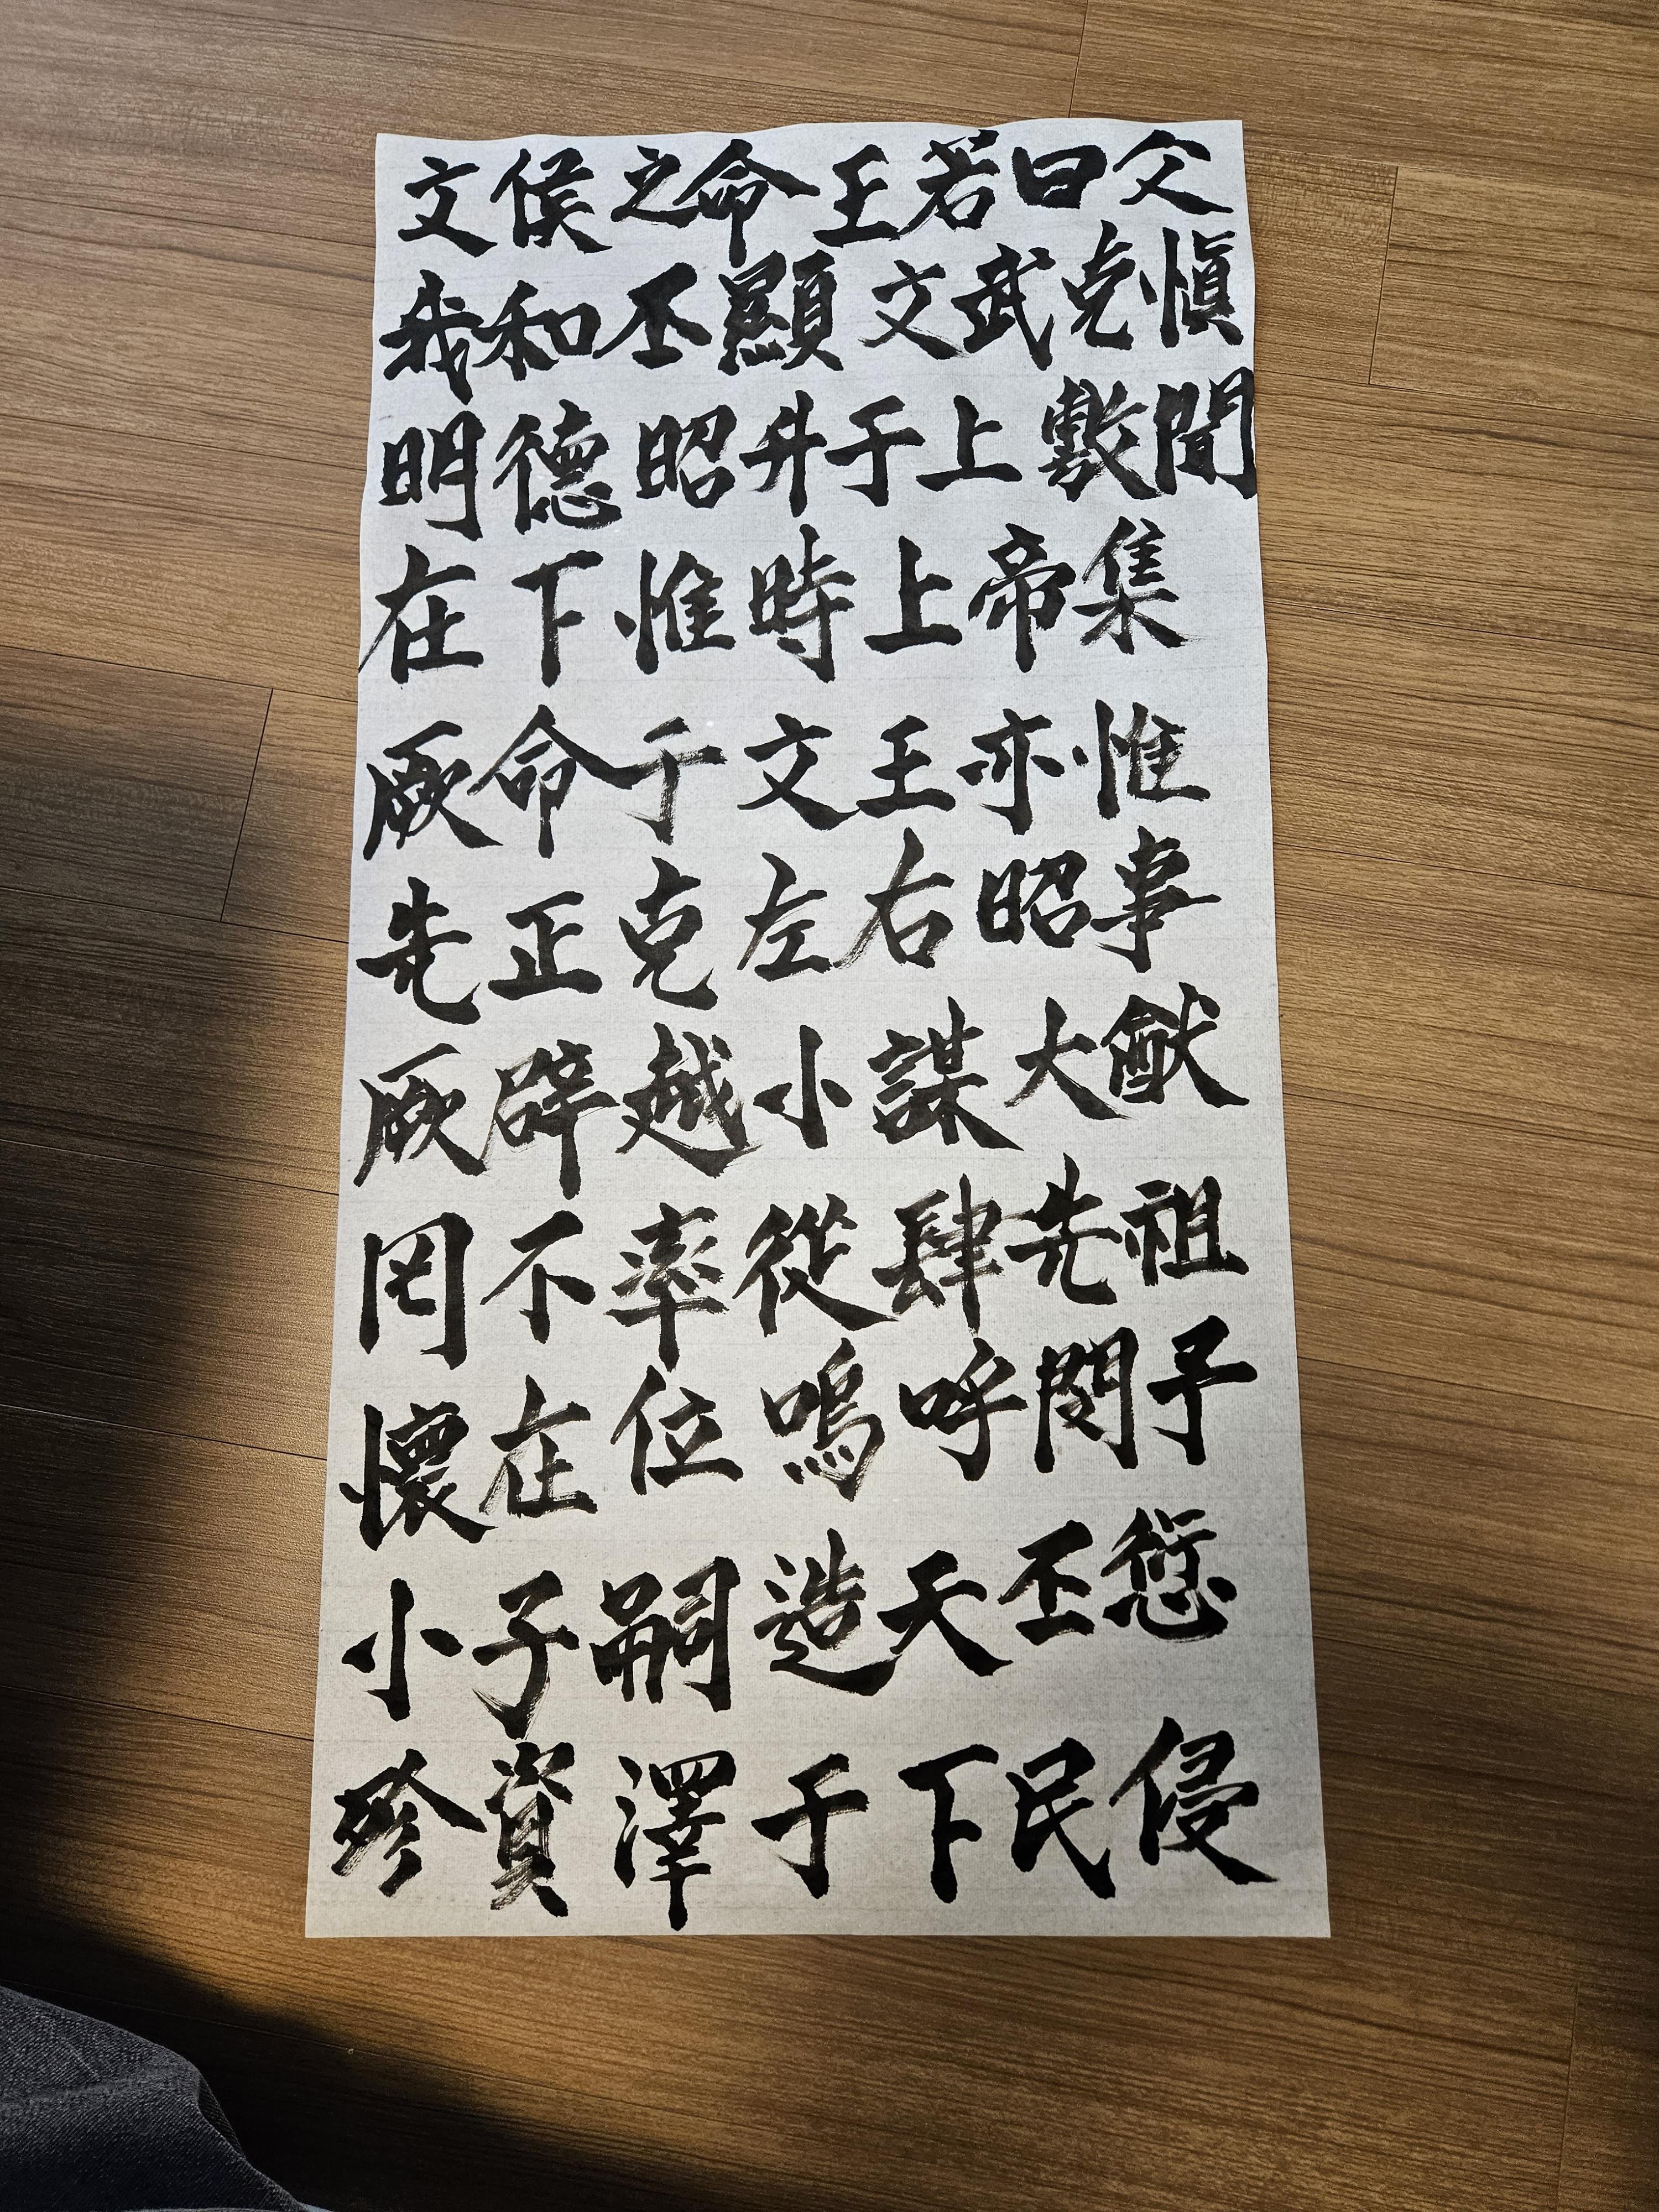 文侯之命王若曰父
義和丕顯文武克慎
明德昭升于上敷聞
在下惟時上帝集
厥命于文王亦惟
先正克左右昭事
厥辟越小謀大猷
罔不率從肆先祖
懷在位嗚呼閔予
小子嗣造天丕愆
殄資澤于下民侵